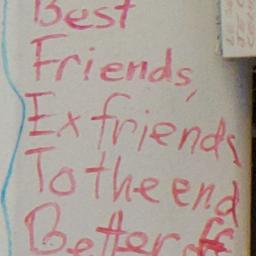 Best
Friends,
Ex friends
To the end
Better off